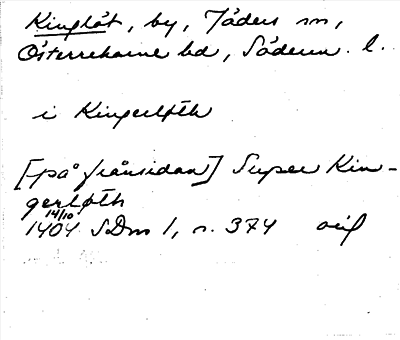 Kinglöt, by, Jäders sn,
Österrekarne hd, Söderm. l.
i Kingerløth
[på frånsidan] Super Kin-
gerløth
14/10
1404 SDns 1, s. 374 orig